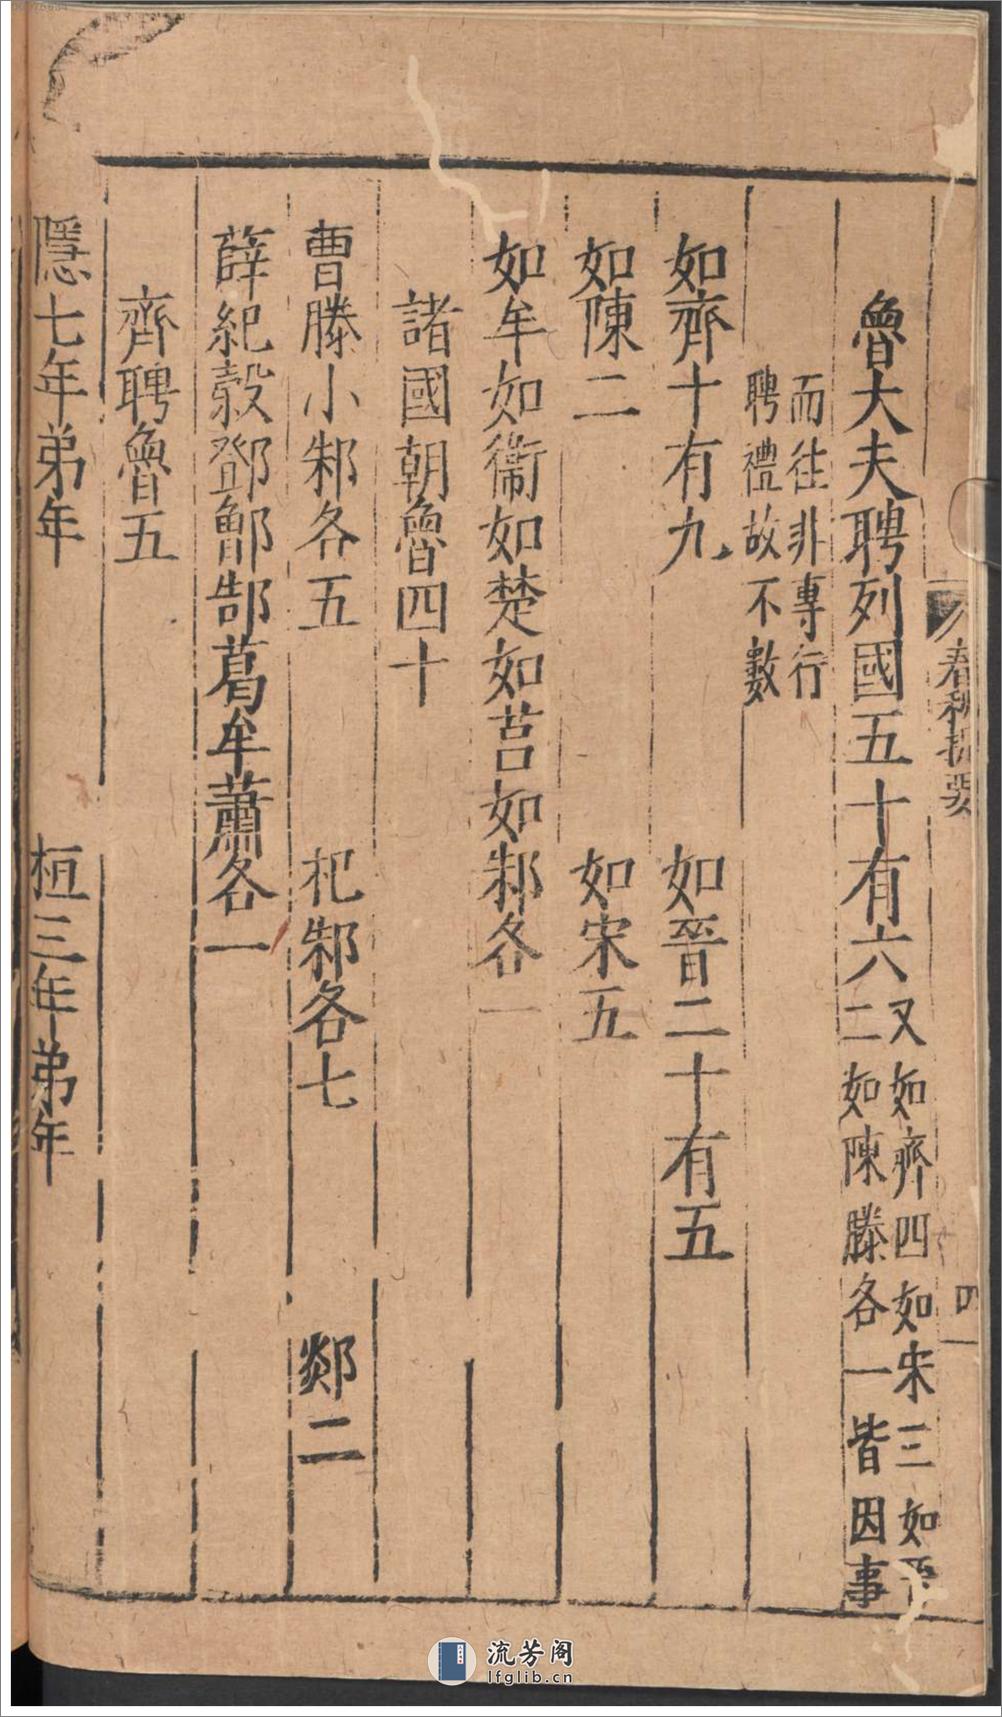 春秋提要
四
魯大夫聘列國五十有六
又如齊四如宋三如晉
二如陳滕各一皆因事
而往非專行
聘禮故不數
如齊十有九 如晉二十有五
如陳二 如宋五
如牟如衞如楚如莒如邾各一
諸國朝魯四十
曹滕小邾各五 杞邾各七 郯二
薛紀穀鄧郳郜葛牟蕭各一
齊聘魯五
隱七年弟年 桓三年弟年
流芳阁
lfglib.cn